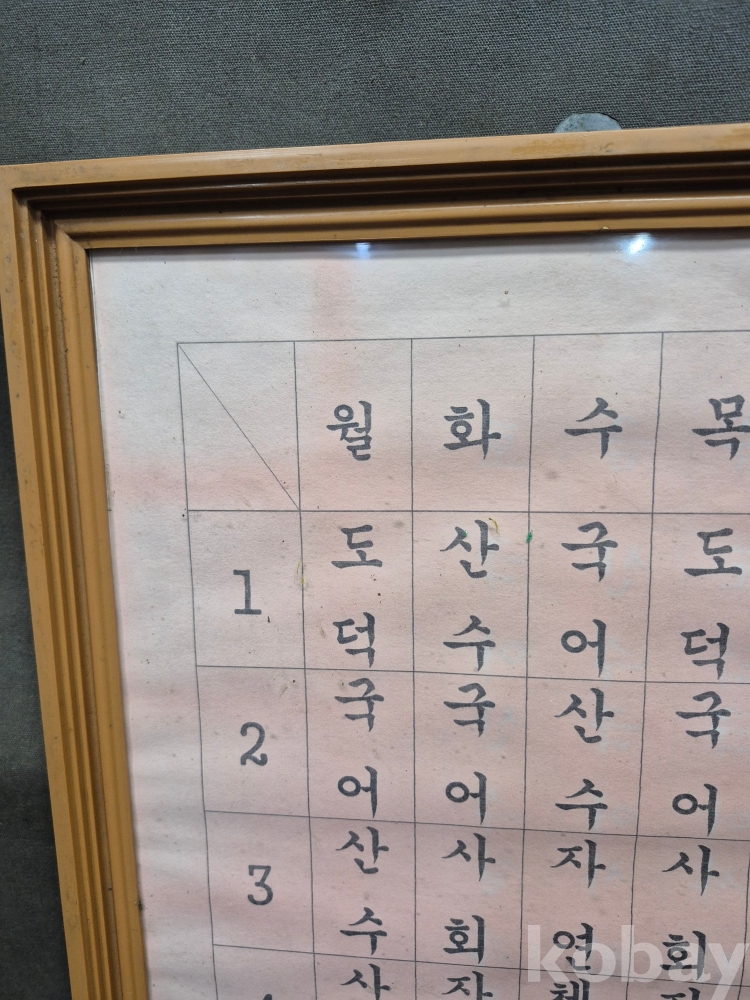 월 화 수 목
1 도덕 산수 국어 도덕
2 국어 국어 산수 국어
3 산수 사회 자연 사회
kobay